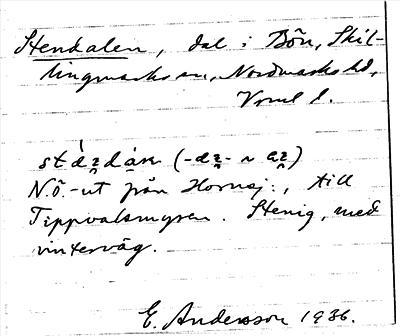 Stendalen, dal i Bön, Skil-
lingmarks sn, Nordmarks hd,
Vrml l.
N.Ö.-ut från Hornsj., till
Tippvalsmyren. Stenig, med
vinterväg.
E. Andersson 1936.